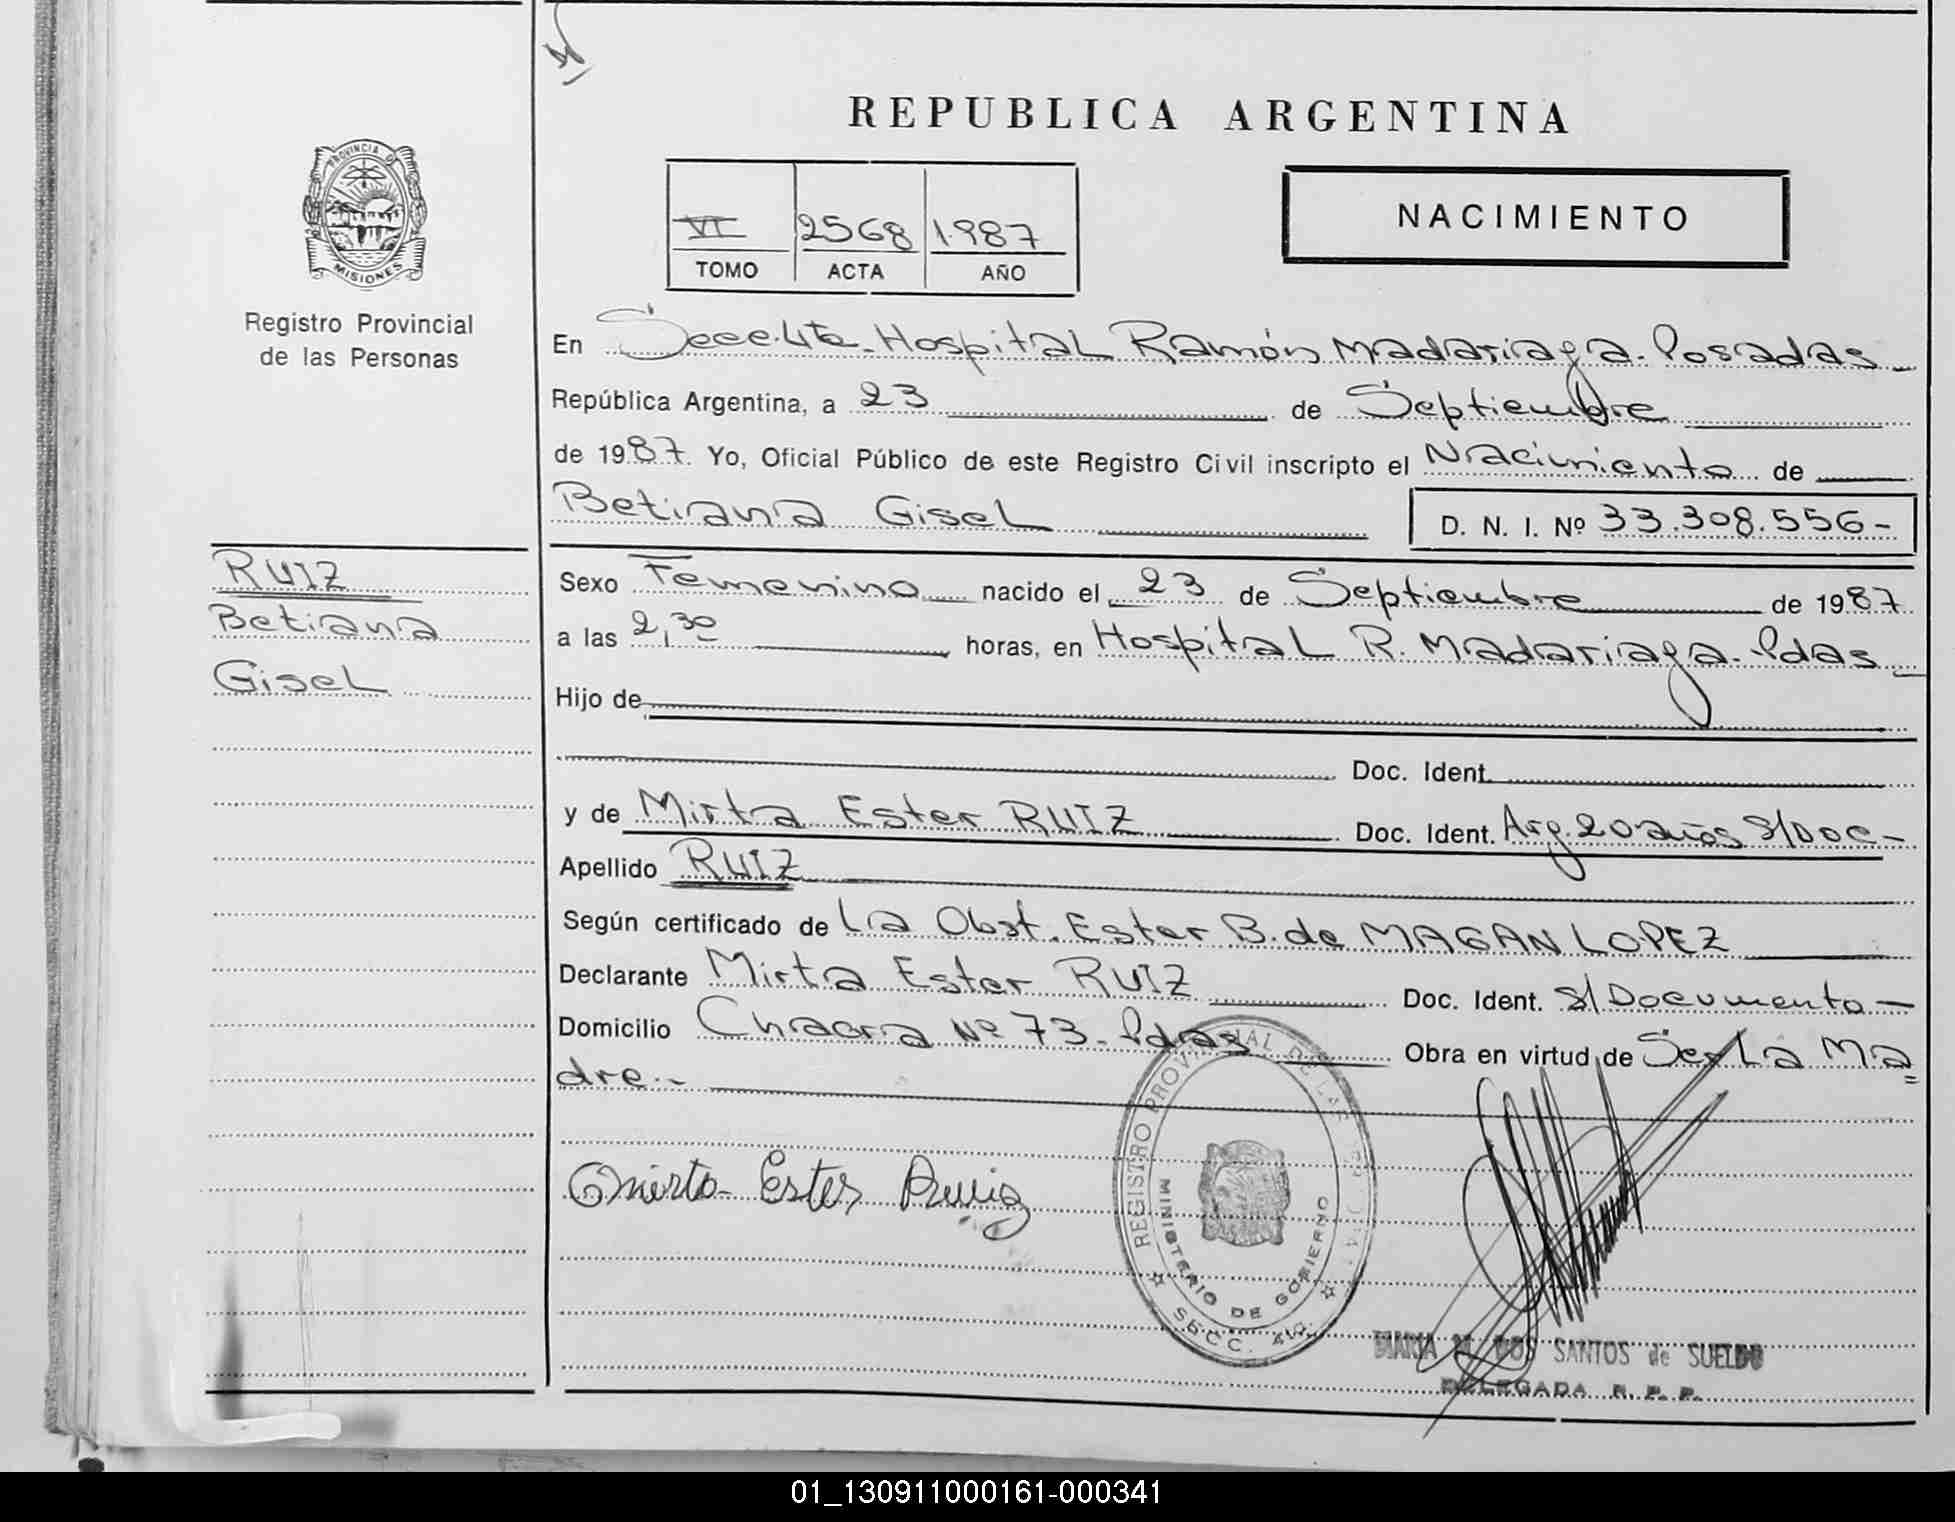 REPUBLICA ARGENTINA
PROVINCIA DE
MISIONES
Registro Provincial
de las Personas
VI 2568 1.987
TOMO ACTA AÑO
NACIMIENTO
En Secc.4ta-Hospital Ramón Madariaga-Posadas
República Argentina, a 23 de Septiembre
de 1987. Yo, Oficial Público de este Registro Civil inscripto el Nacimiento de
Betiana Gisel D. N. I. Nº 33.308.556-
RUIZ
Betiana
Gisel
Sexo Femenino nacido el 23 de Septiembre de 1987
a las 2,30 horas, en Hospital R. Madariaga-Pdas
Hijo de
Doc. Ident.
y de Mirta Ester RUIZ Doc. Ident. Arg.20 años S/Doc-
Apellido RUIZ
Según certificado de La Obst. Ester B. de MAGAN LOPEZ
Declarante Mirta Ester RUIZ Doc. Ident. S/Documento-
Domicilio Chacra Nº 73-Pdas Obra en virtud de Ser La Ma
dre.-
Mirta Ester Ruiz
REGISTRO PROVINCIAL DE LAS
MINISTERIO DE GOBIERNO
SECC. 4ta.
MARIA DOS SANTOS de SUELDO
DELEGADA R. P. P.
01_130911000161-000341